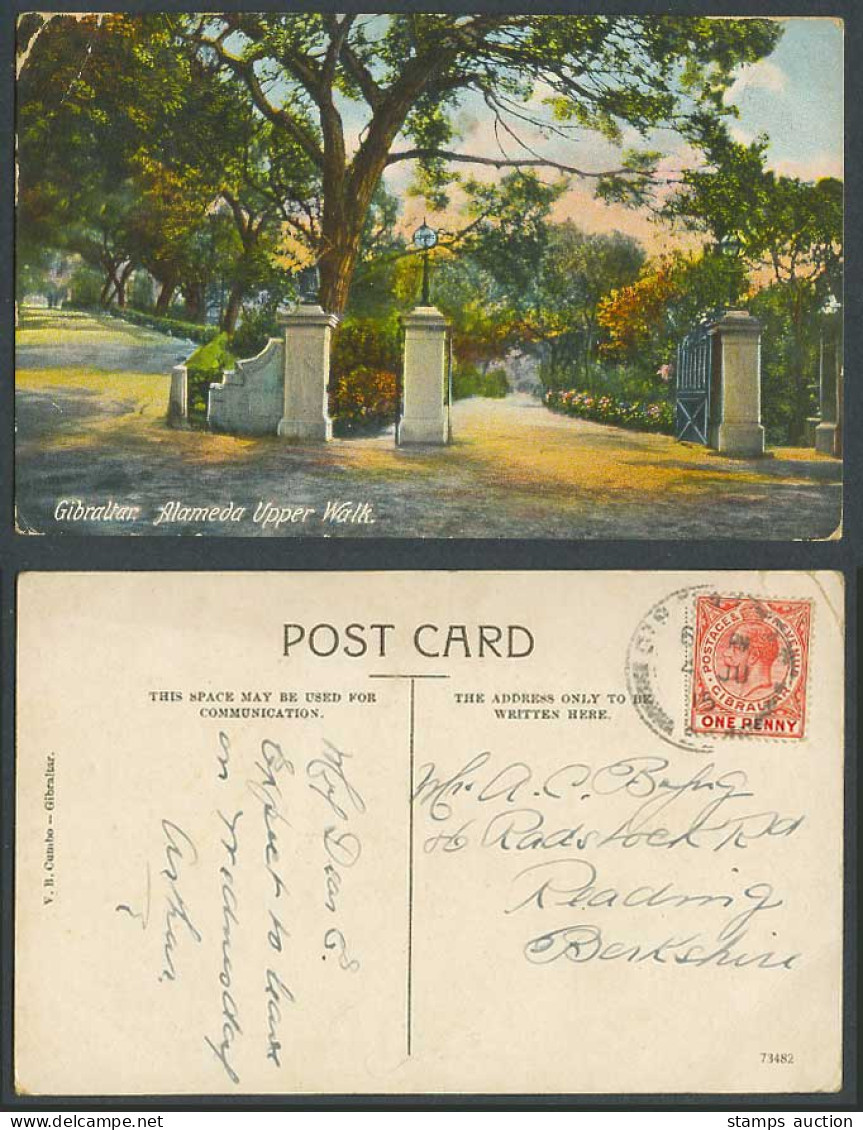 Gibraltar. Alameda Upper Walk.
POST CARD
THIS SPACE MAY BE USED FOR
COMMUNICATION.
THE ADDRESS ONLY TO BE
WRITTEN HERE.
POSTAGE & REVENUE
GIBRALTAR
ONE PENNY
V. B. Cumbo – Gibraltar.
My Dear E.
Expect to leave
on Wednesday
Arthur.
A. C.
Radstock Rd
Reading
Berkshire
73482
stamps auction